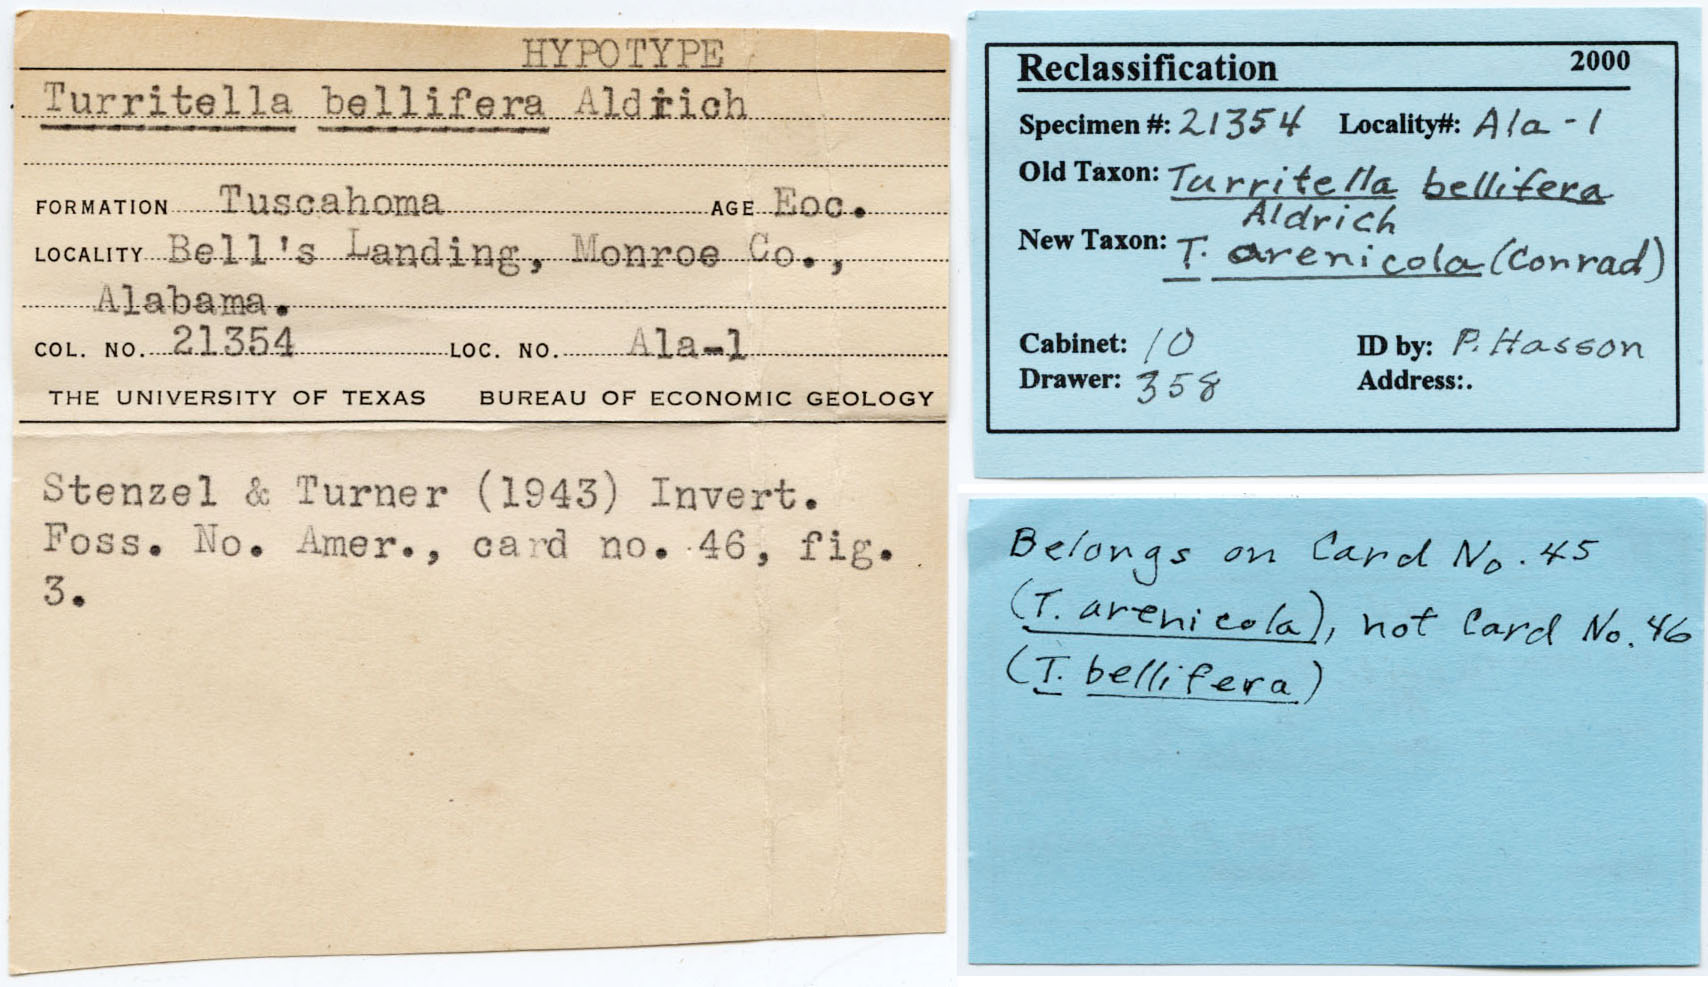 HYPOTYPE
Turritella bellifera Aldrich
FORMATION Tuscahoma AGE Eoc.
LOCALITY Bell's Landing, Monroe Co.,
Alabama.
COL. NO. 21354 LOC. NO. Ala-1
THE UNIVERSITY OF TEXAS BUREAU OF ECONOMIC GEOLOGY
Stenzel & Turner (1943) Invert.
Foss. No. Amer., card no. 46, fig.
3.
Reclassification 2000
Specimen #: 21354 Locality#: Ala-1
Old Taxon: Turritella bellifera
Aldrich
New Taxon: T. arenicola (Conrad)
Cabinet: 10 ID by: P. Hasson
Drawer: 358 Address:.
Belongs on Card No. 45
(T. arenicola), not Card No. 46
(T. bellifera)